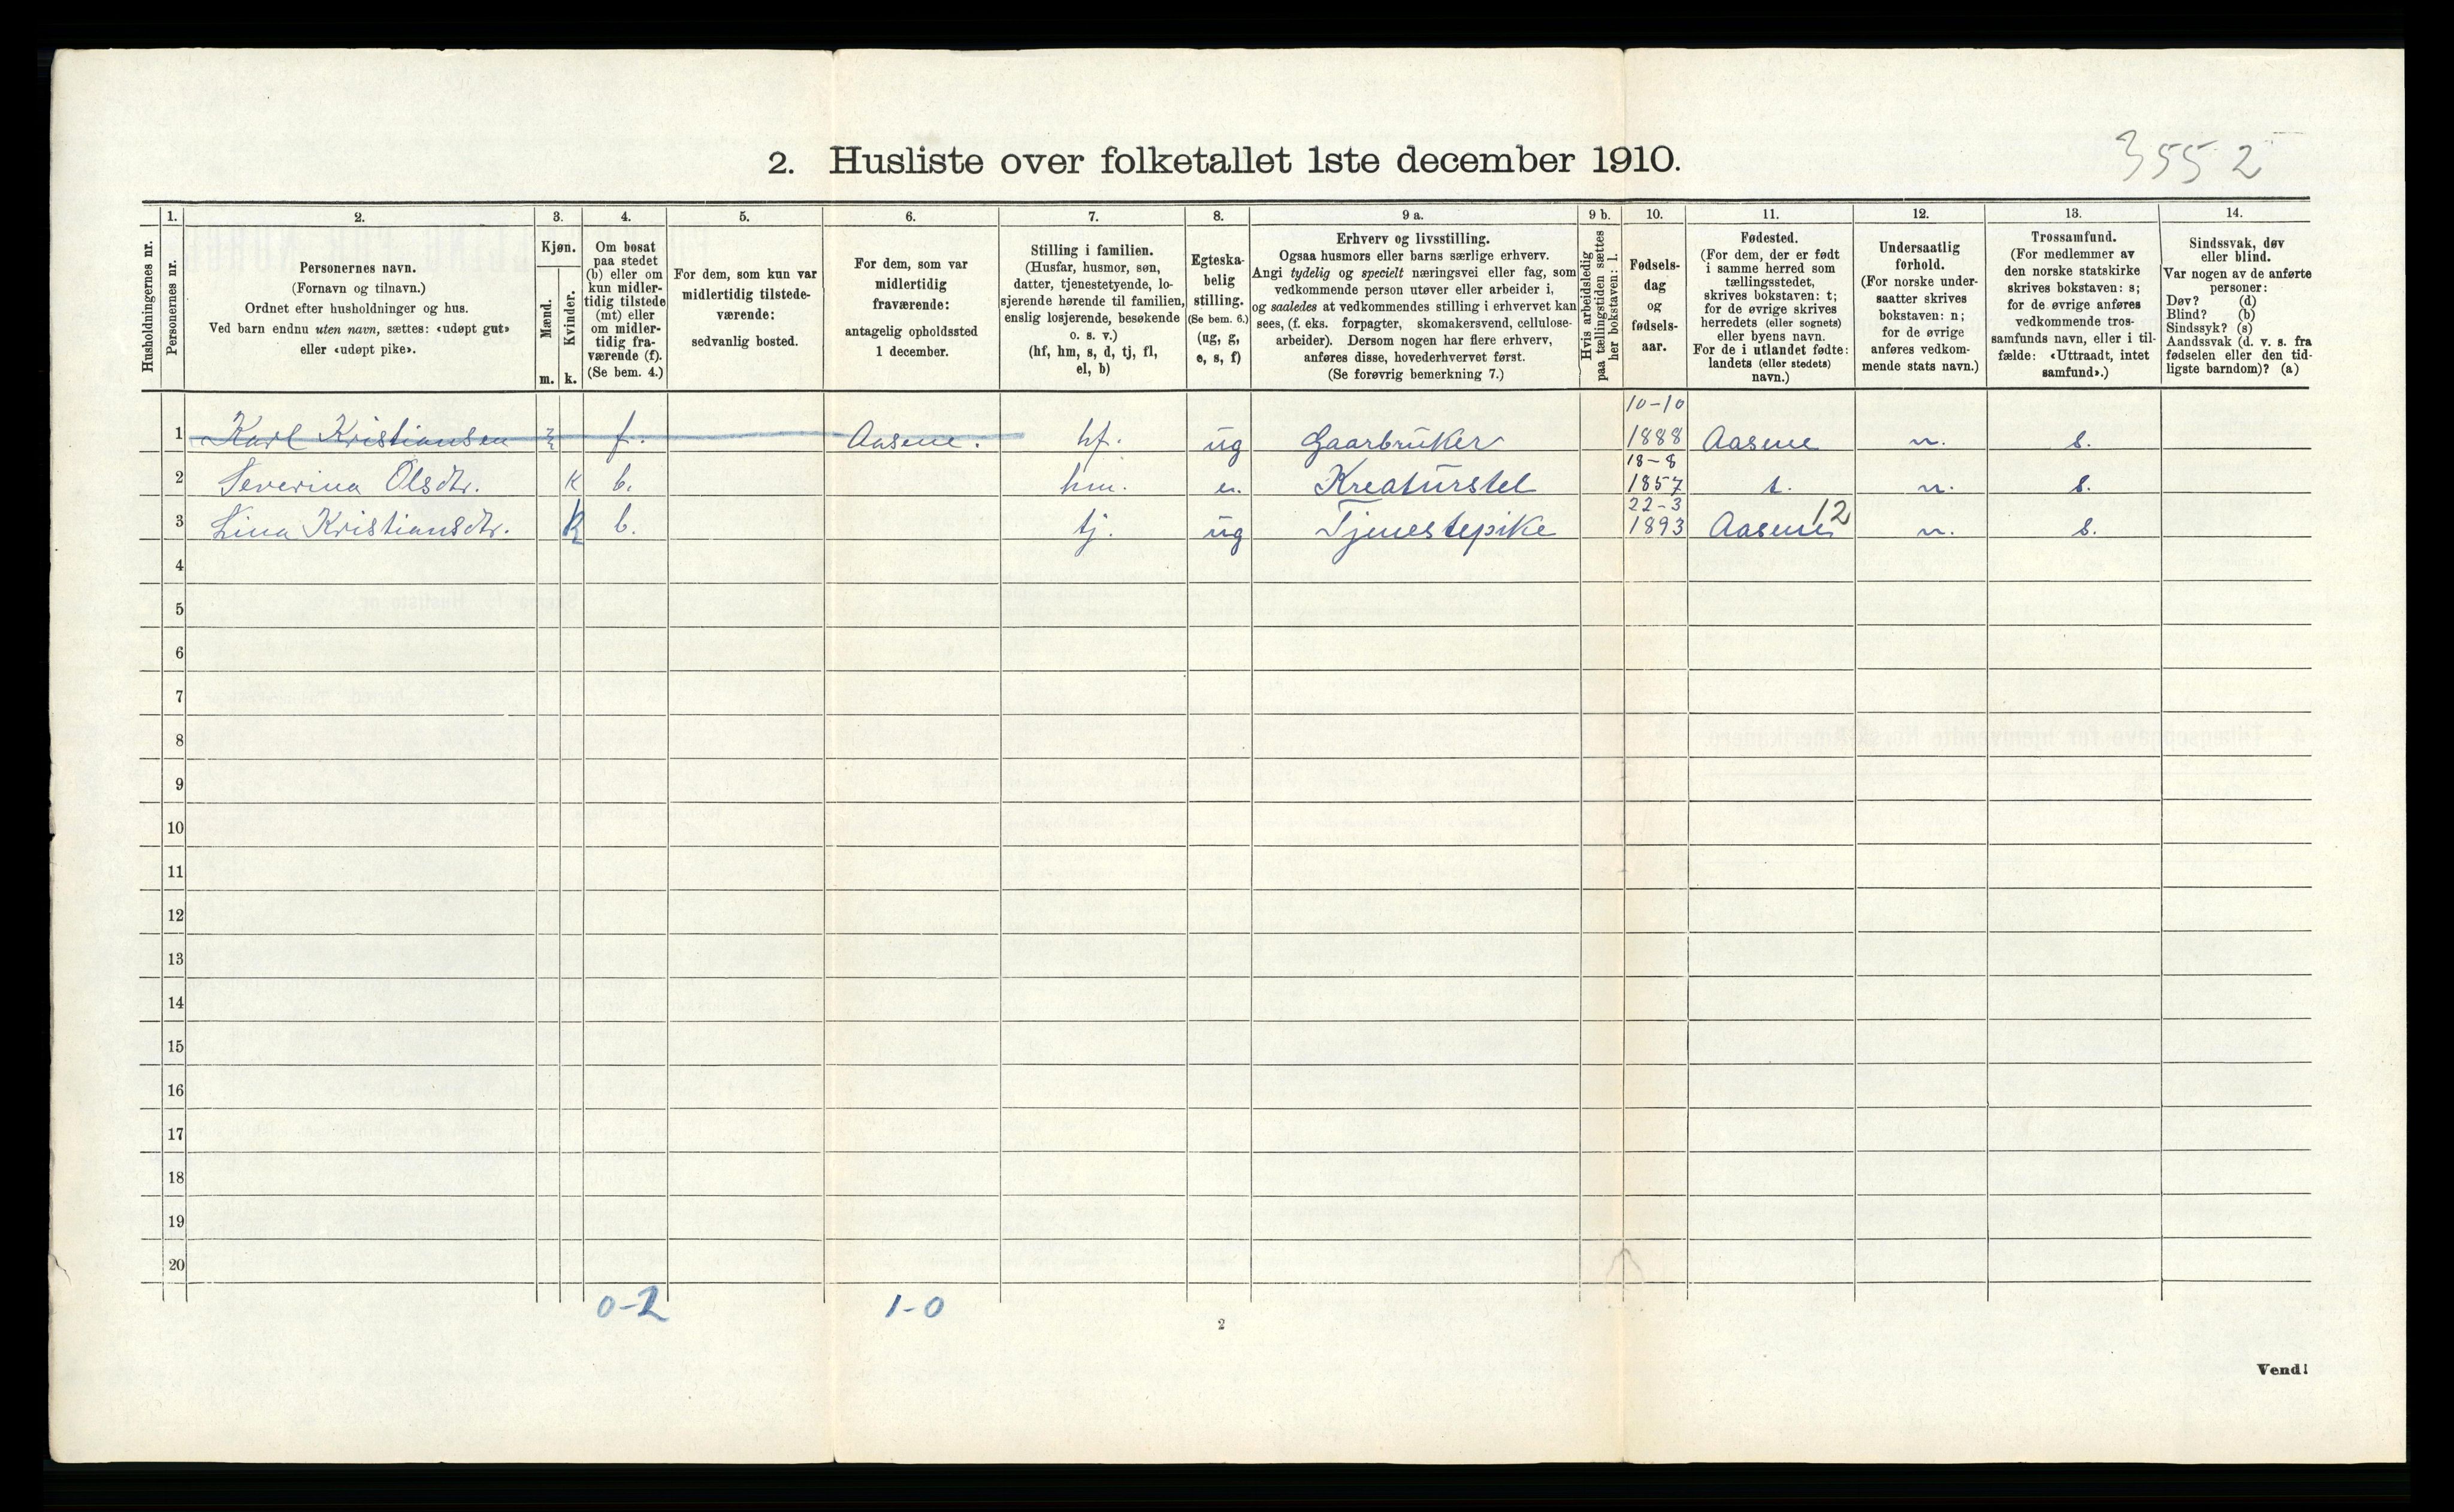 3552
2. Husliste over folketallet 1ste december 1910.
Husholdningernes nr.
1.
Personernes nr.
2.
Personernes navn.
(Fornavn og tilnavn.)
Ordnet efter husholdninger og hus.
Ved barn endnu uten navn, sættes: «udøpt gut»
eller «udøpt pike».
3.
Kjøn.
Mænd.
Kvinder.
m. k.
4.
Om bosat
paa stedet
(b) eller om
kun midler-
tidig tilstede
(mt) eller
om midler-
tidig fra-
værende (f).
(Se bem. 4.)
5.
For dem, som kun var
midlertidig tilstede-
værende:
sedvanlig bosted.
6.
For dem, som var
midlertidig
fraværende:
antagelig opholdssted
1 december.
7.
Stilling i familien.
(Husfar, husmor, søn,
datter, tjenestetyende, lo-
sjerende hørende til familien,
enslig losjerende, besøkende
o. s. v.)
(hf, hm, s, d, tj, fl,
el, b)
8.
Egteska-
belig
stilling.
(Se bem. 6.)
(ug, g,
e, s, f)
9 a.
Erhverv og livsstilling.
Ogsaa husmors eller barns særlige erhverv.
Angi tydelig og specielt næringsvei eller fag, som
vedkommende person utøver eller arbeider i,
og saaledes at vedkommendes stilling i erhvervet kan
sees, (f. eks. forpagter, skomakersvend, cellulose-
arbeider). Dersom nogen har flere erhverv,
anføres disse, hovederhvervet først.
(Se forøvrig bemerkning 7.)
9 b.
Hvis arbeidsledig
paa tællingstiden sættes
her bokstaven: l.
10.
Fødsels-
dag
og
fødsels-
aar.
11.
Fødested.
(For dem, der er født
i samme herred som
tællingsstedet,
skrives bokstaven: t;
for de øvrige skrives
herredets (eller sognets)
eller byens navn.
For de i utlandet fødte:
landets (eller stedets)
navn.)
12.
Undersaatlig
forhold.
(For norske under-
saatter skrives
bokstaven: n;
for de øvrige
anføres vedkom-
mende stats navn.)
13.
Trossamfund.
(For medlemmer av
den norske statskirke
skrives bokstaven: s;
for de øvrige anføres
vedkommende tros-
samfunds navn, eller i til-
fælde: «Uttraadt, intet
samfund».)
14.
Sindssvak, døv
eller blind.
Var nogen av de anførte
personer:
Døv? (d)
Blind? (b)
Sindssyk? (s)
Aandssvak (d. v. s. fra
fødselen eller den tid-
ligste barndom)? (a)
1 Karl Kristiansen f. Aasene. hf. ug Gaarbruker 10-10 1888 Aasene n. s.
2 Severina Olsdtr. k b. hm. e. Kreaturstel 18-8 1857 t. n. s.
3 Lina Kristiansdtr. k b. tj. ug Tjenestepike 22-3 1893 Aasene 12 n. s.
4
5
6
7
8
9
10
11
12
13
14
15
16
17
18
19
20
0-2 1-0
2
Vend!